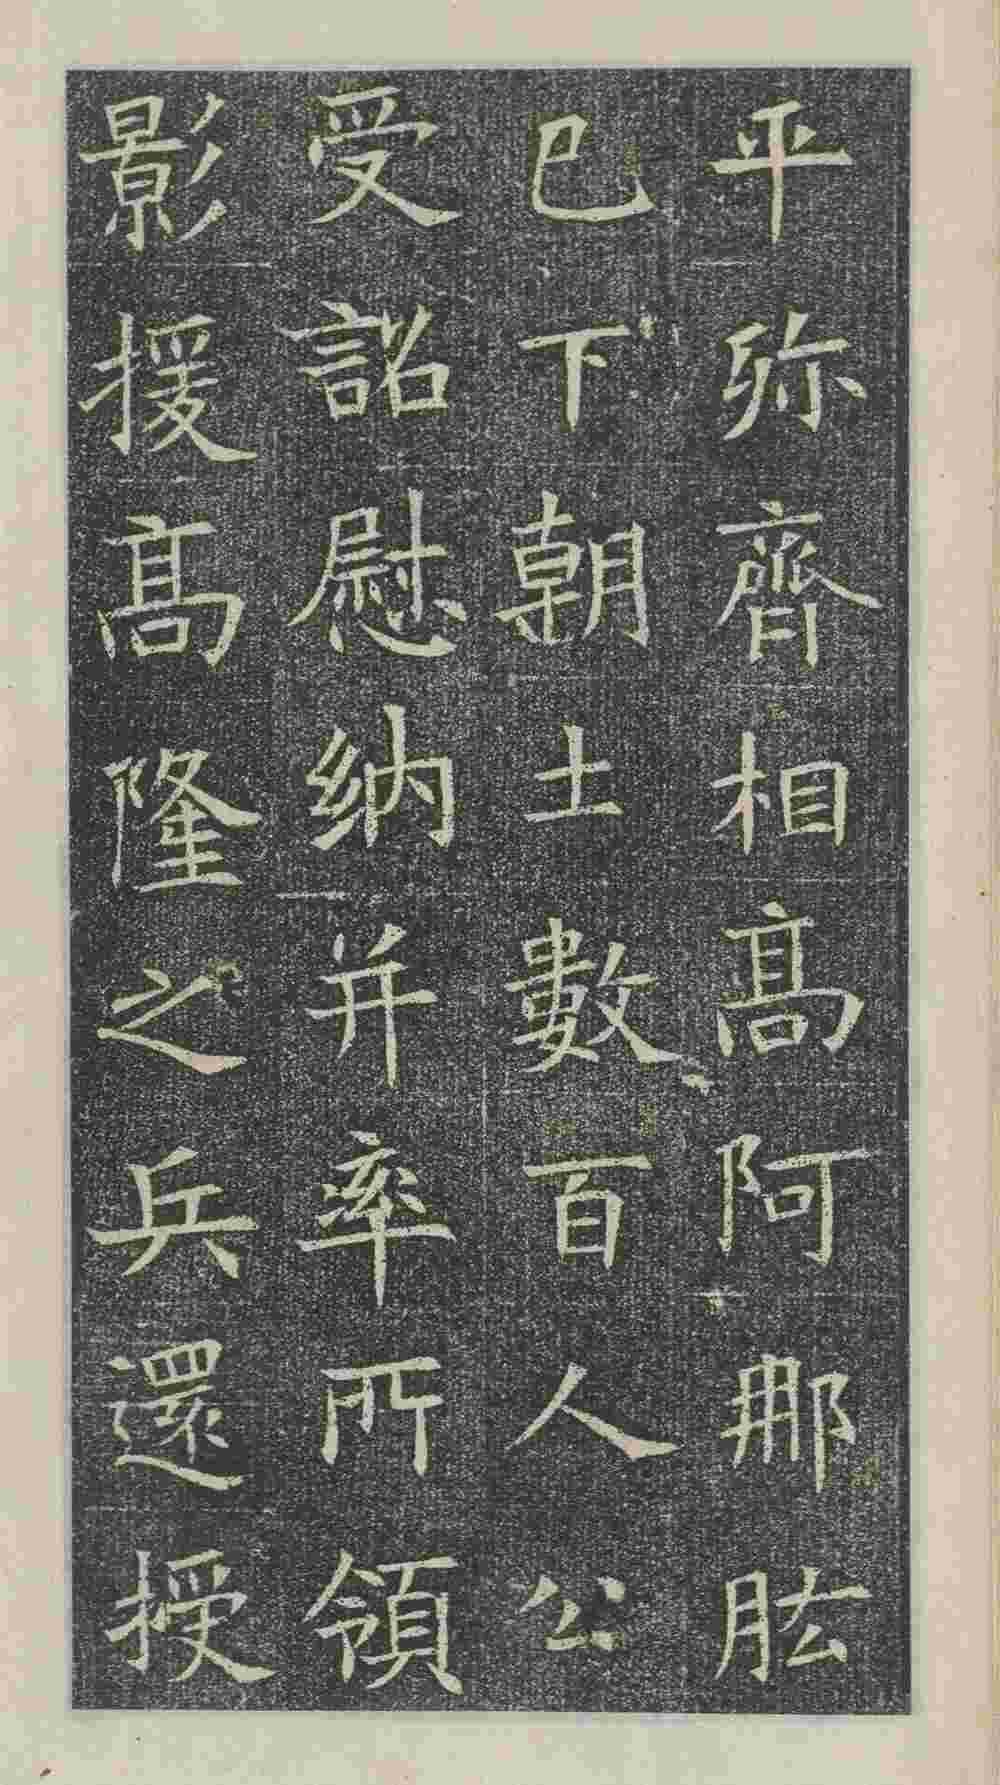 平殄齊相髙阿那肱
已下朝士數百人公
受詔慰納并率所領
影援髙隆之兵還授